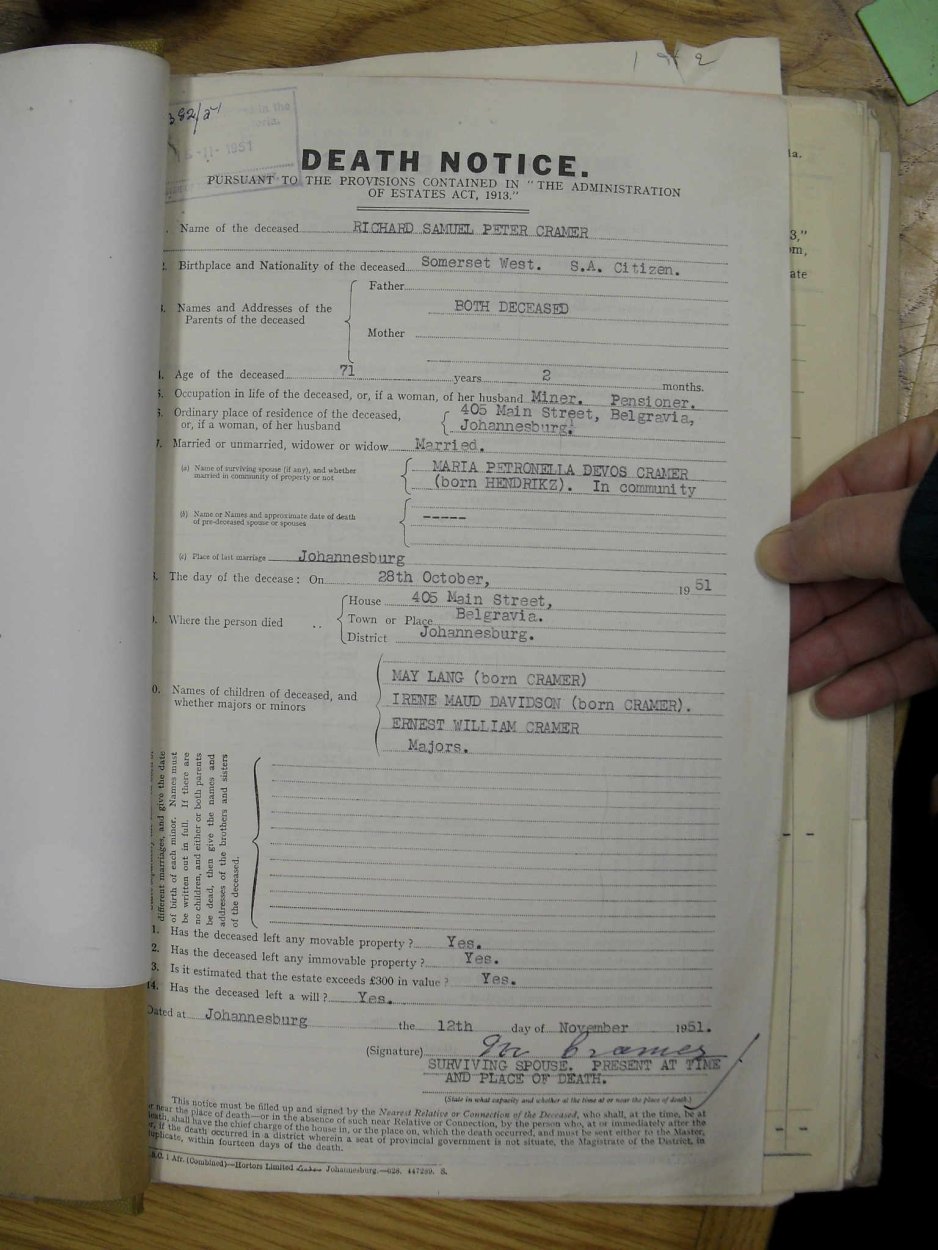 382/21
in the
1951
DEATH NOTICE.
PURSUANT TO THE PROVISIONS CONTAINED IN "THE ADMINISTRATION
OF ESTATES ACT, 1913."
Name of the deceased RICHARD SAMUEL PETER CRAMER
2. Birthplace and Nationality of the deceased Somerset West. S.A. Citizen.
Father
Names and Addresses of the
Parents of the deceased
BOTH DECEASED
Mother
Age of the deceased 71 years 2 months.
Occupation in life of the deceased, or, if a woman, of her husband Miner. Pensioner.
Ordinary place of residence of the deceased,
or, if a woman, of her husband
405 Main Street, Belgravia,
Johannesburg.
7. Married or unmarried, widower or widow Married.
(a) Name of surviving spouse (if any), and whether
married in community of property or not
MARIA PETRONELLA DEVOS CRAMER
(born HENDRIKZ). In community
(b) Name or Names and approximate date of death
of pre-deceased spouse or spouses
-----
(c) Place of last marriage Johannesburg
The day of the decease: On 28th October, 1951
Where the person died
House 405 Main Street,
Town or Place Belgravia.
District Johannesburg.
0. Names of children of deceased, and
whether majors or minors
MAY LANG (born CRAMER)
IRENE MAUD DAVIDSON (born CRAMER).
ERNEST WILLIAM CRAMER
Majors.
different marriages, and give the date
of birth of each minor. Names must
be written out in full. If there are
no children, and either or both parents
be dead, then give the names and
addresses of the brothers and sisters
of the deceased.
1. Has the deceased left any movable property? Yes.
2. Has the deceased left any immovable property? Yes.
3. Is it estimated that the estate exceeds £300 in value? Yes.
14. Has the deceased left a will? Yes.
Dated at Johannesburg the 12th day of November 1951.
(Signature) M Cramer
SURVIVING SPOUSE. PRESENT AT TIME
AND PLACE OF DEATH.
(State in what capacity and whether at the time at or near the place of death.)
This notice must be filled up and signed by the Nearest Relative or Connection of the Deceased, who shall, at the time, be at
or near the place of death—or in the absence of such near Relative or Connection, by the person who, at or immediately after the
death, shall have the chief charge of the house in, or the place on, which the death occurred, and must be sent either to the Master,
or, if the death occurred in a district wherein a seat of provincial government is not situate, the Magistrate of the District, in
duplicate, within fourteen days of the death.
1 Afr. (Combined)—Hortors Limited Johannesburg.—628. 447259. S.